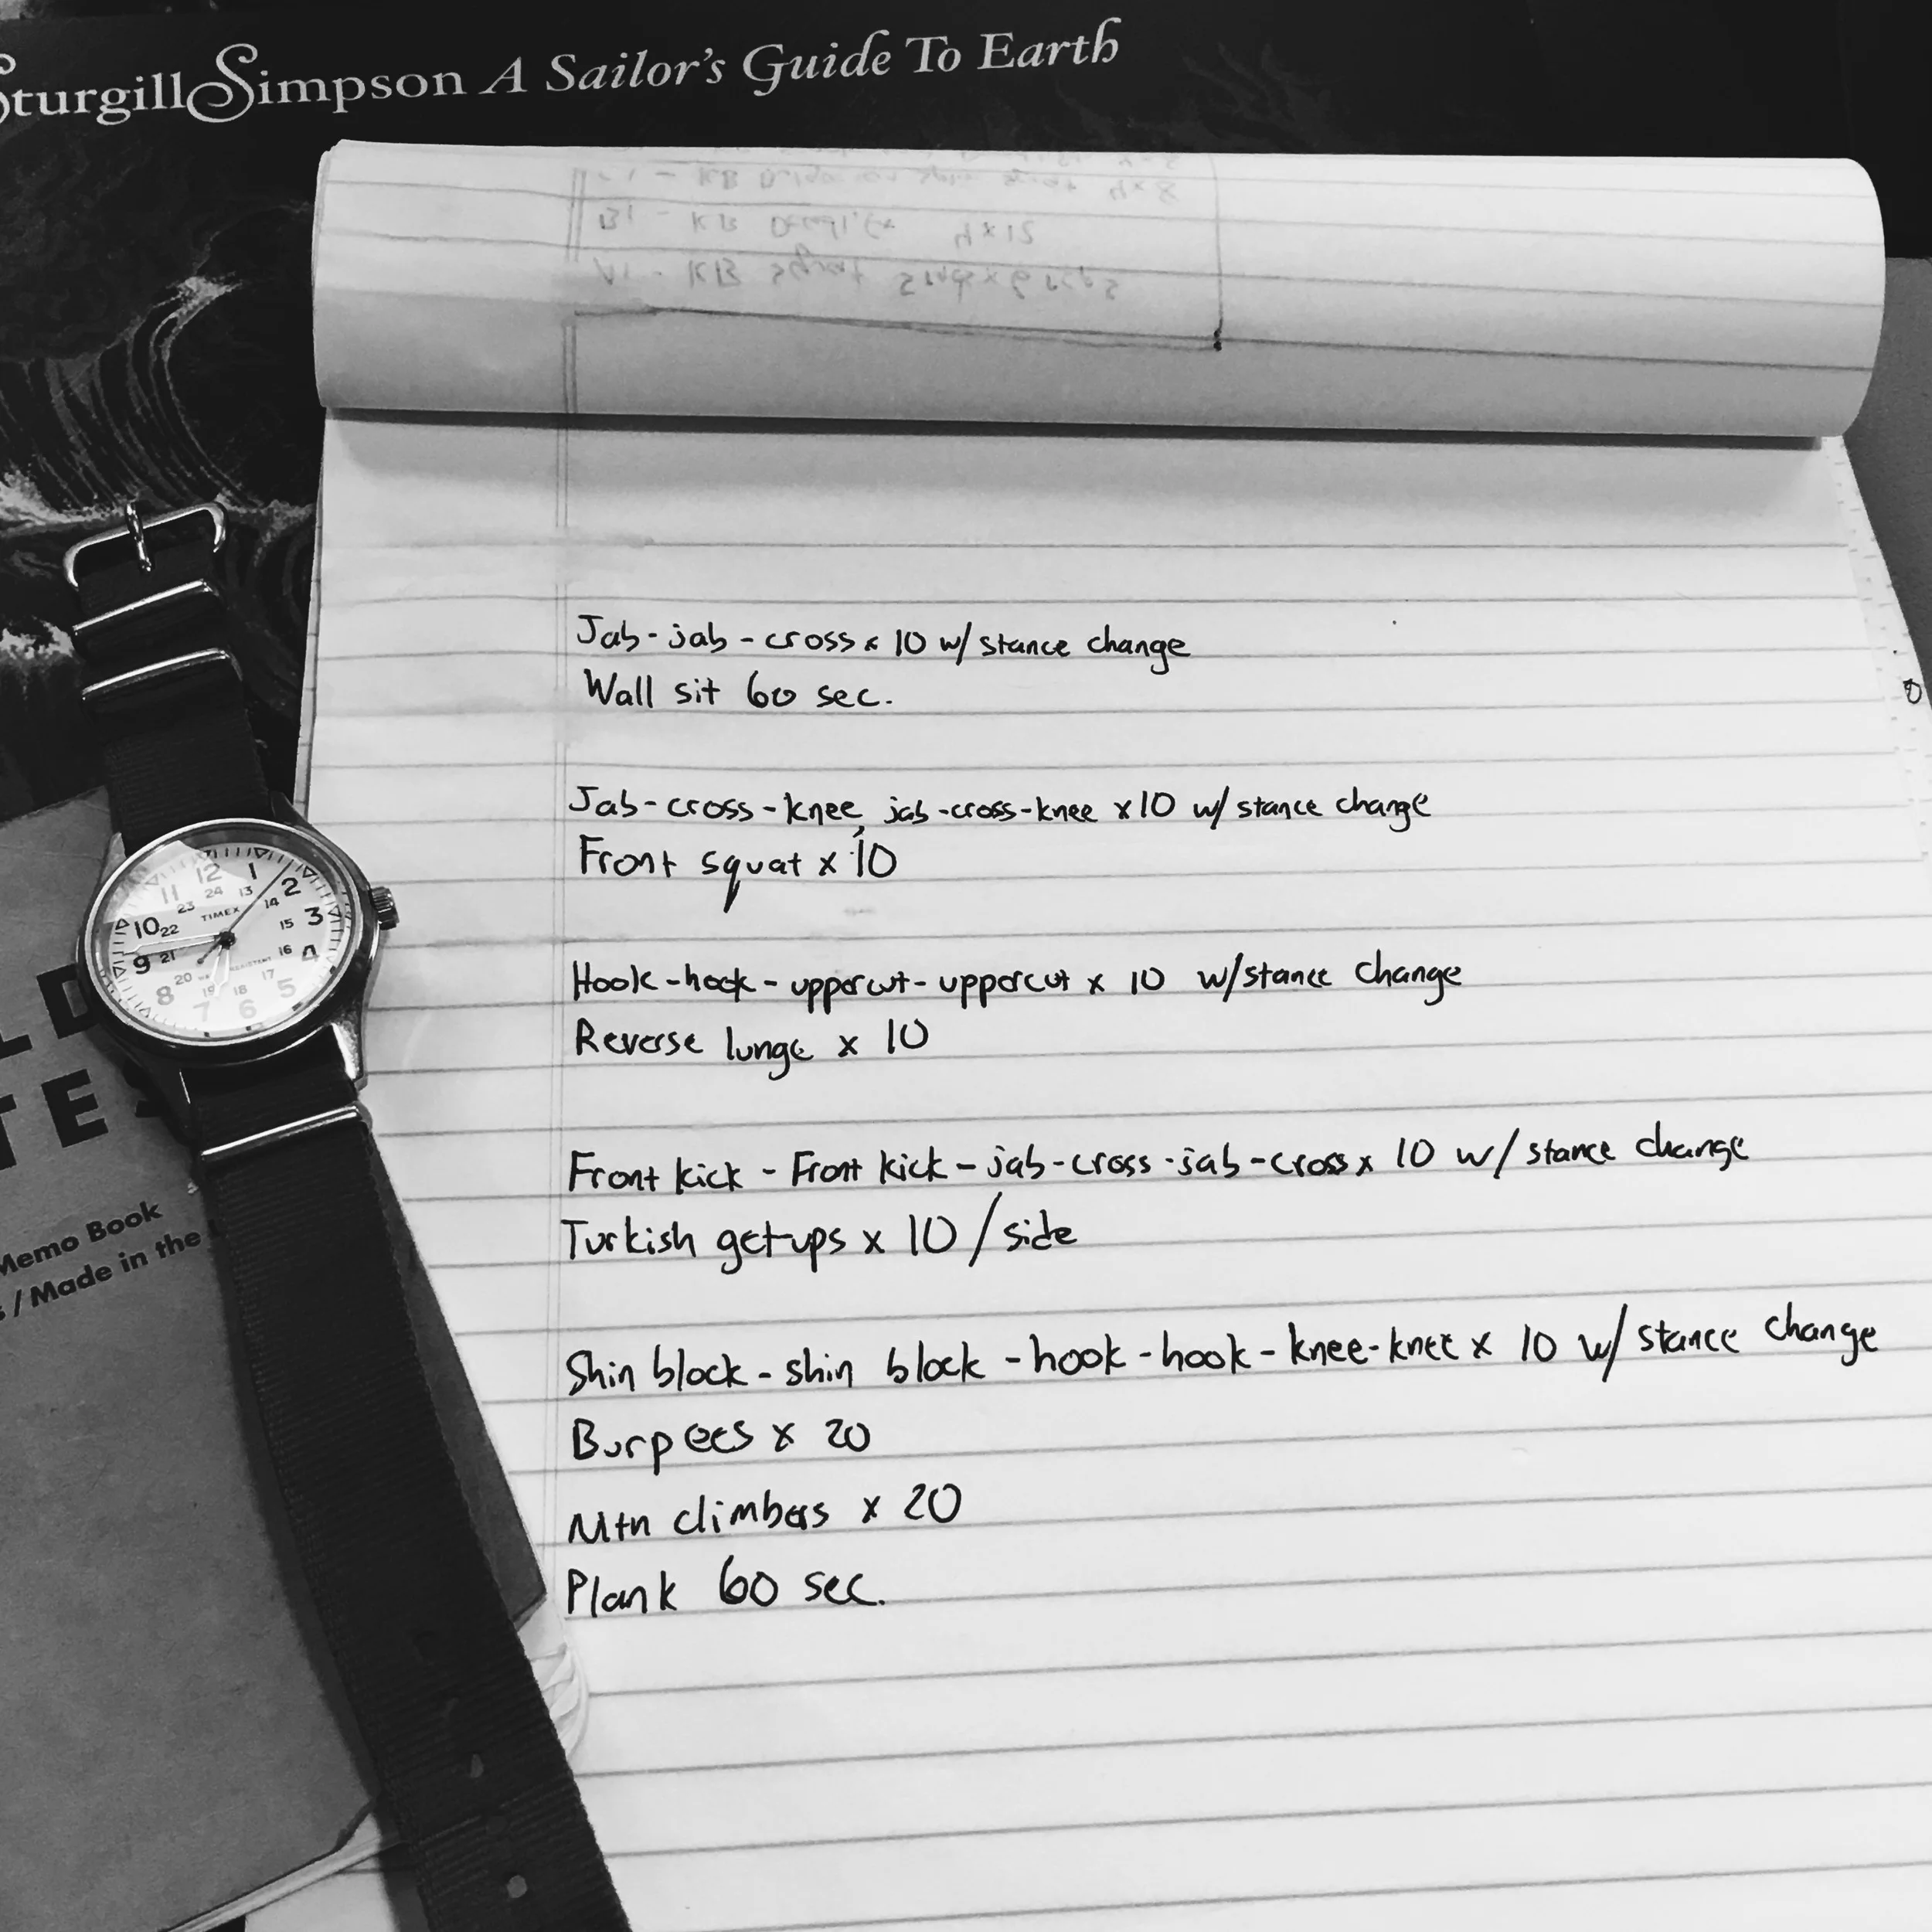 Sturgill Simpson A Sailor's Guide To Earth
B1 - KB Deadlift 4x12
A1 - KB squat
Jab-jab-cross x 10 w/ stance change
Wall sit 60 sec.
Jab-cross-knee, jab-cross-knee x10 w/ stance change
Front squat x 10
Hook-hook-uppercut-uppercut x 10 w/stance change
Reverse lunge x 10
Front kick - Front kick - jab-cross-jab-cross x 10 w/ stance change
Turkish get-ups x 10/side
Shin block - shin block - hook - hook - knee-knee x 10 w/ stance change
Burpees x 20
Mtn climbers x 20
Plank 60 sec.
12 1 2 3 4 5 6 7 8 9 10 11
24 13 14 15 16 17 18 19 20 21 22 23
TIMEX
Memo Book
/ Made in the